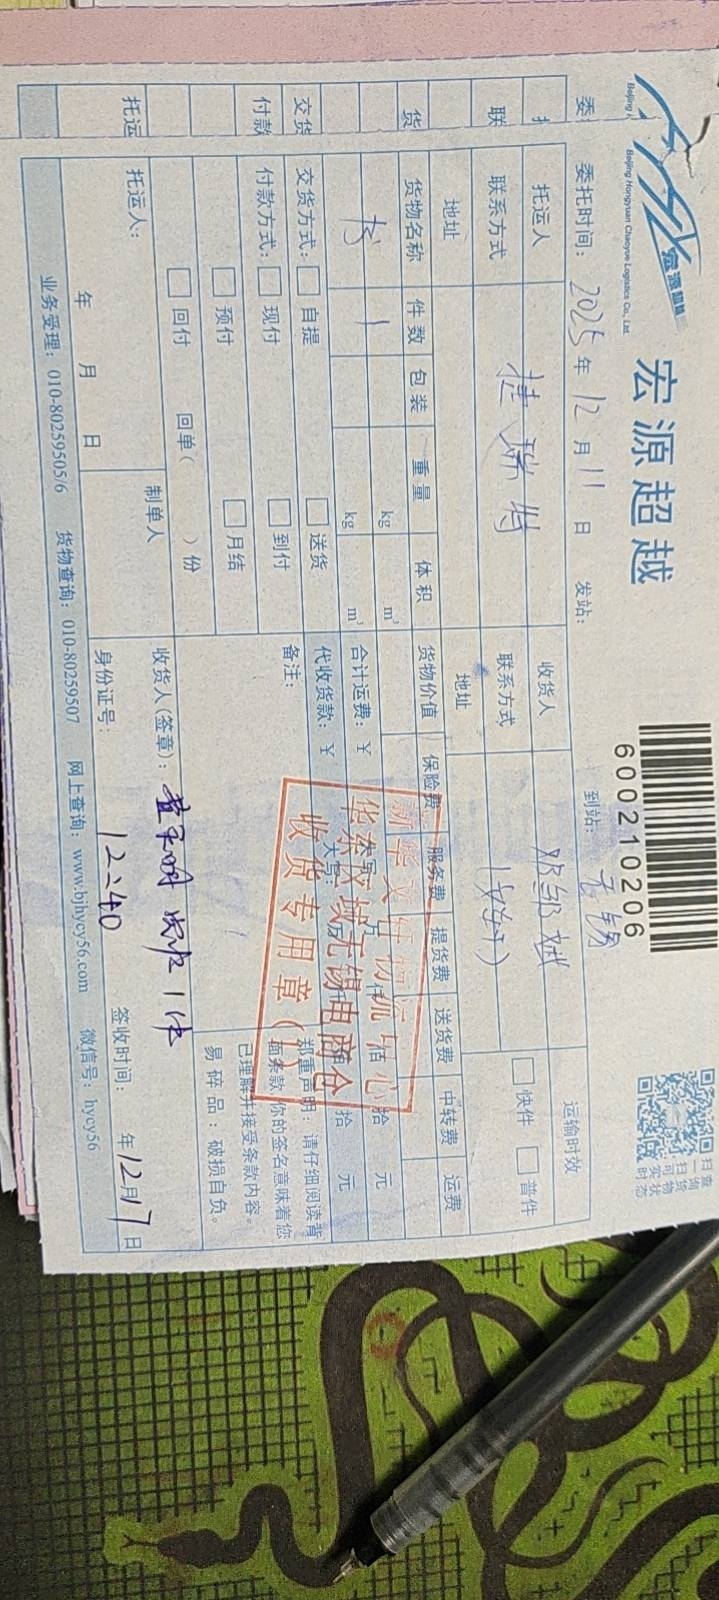 宏源超越
宏源超越
Beijing Hongyuan Chaoyue Logistics Co., Ltd.
600210206
扫查
一询
扫货
可物
知状
时态
委托时间：2025年12月11日 发站： 到站：无锡
托运人 桂瑞特 收货人 运输时效
联系方式 联系方式 快件 普件
地址 地址
货物名称 件数 包装 重量 体积 货物价值 保险费 服务费 提货费 送货费 中转费 运费
书 1 kg m³
kg m³ 合计运费：¥ 大写： 万 仟 佰 拾 元
交货方式： 自提 送货 代收货款：¥ 拾 元
付款方式： 现付 到付 备注：
预付 月结
回付 回单（ ）份
郑重声明：请仔细阅读背
面条款，你的签名意味着您
已理解并接受条款内容。
易碎品：破损自负。
新华文轩物流中心
华东区域无锡电商仓
收货专用章(1)
托运人： 制单人 收货人(签章)： 1件
年 月 日 身份证号： 12:40 签收时间： 年12月17日
业务受理：010-80259505/6 货物查询：010-80259507 网上查询：www.bjhycy56.com 微信号：hycy56
Beijing H
委
联
货
交货
付款
托运